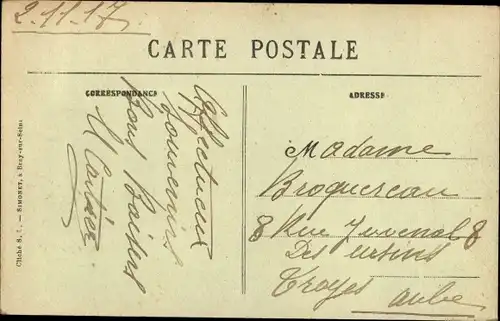 2.11.17
CARTE POSTALE
CORRESPONDANCE
ADRESSE
Affectueux
Souvenirs
Bons Baisers
Madame
Broquereau
8 Rue Juvenal 8
Des ursins
Troyes
aube
Cliché S. C. — SIMONET, à Bray-sur-Seine